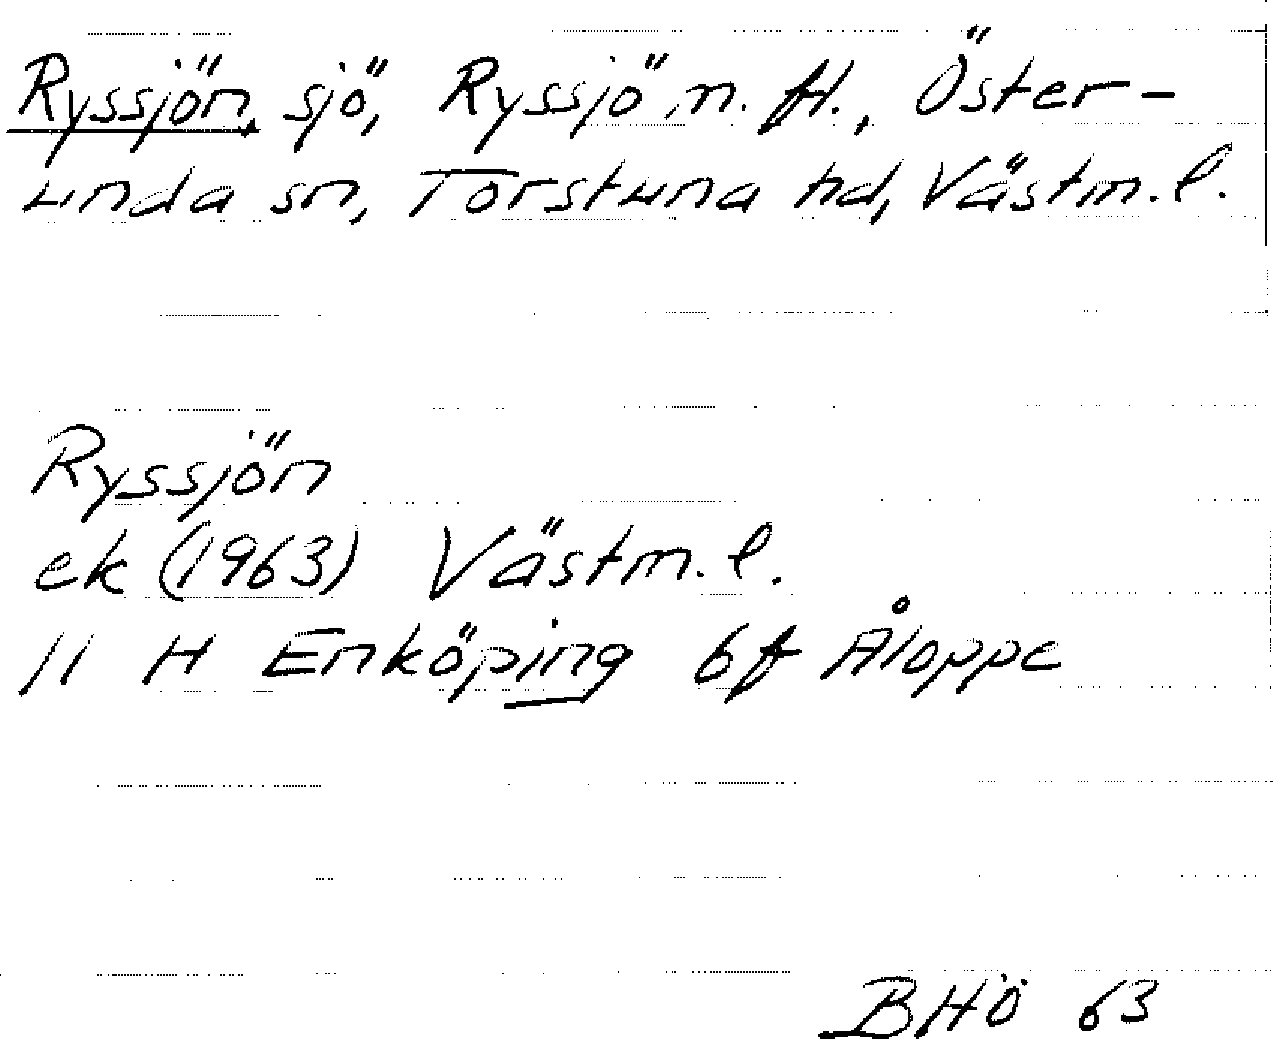 Ryssjön, sjö, Ryssjö n. fl., Öster-
unda sn, Torstuna hd, Västm. l.
Ryssjön
ek (1963) Västm. l.
11 H Enköping 6f Åloppe
BHÖ 63